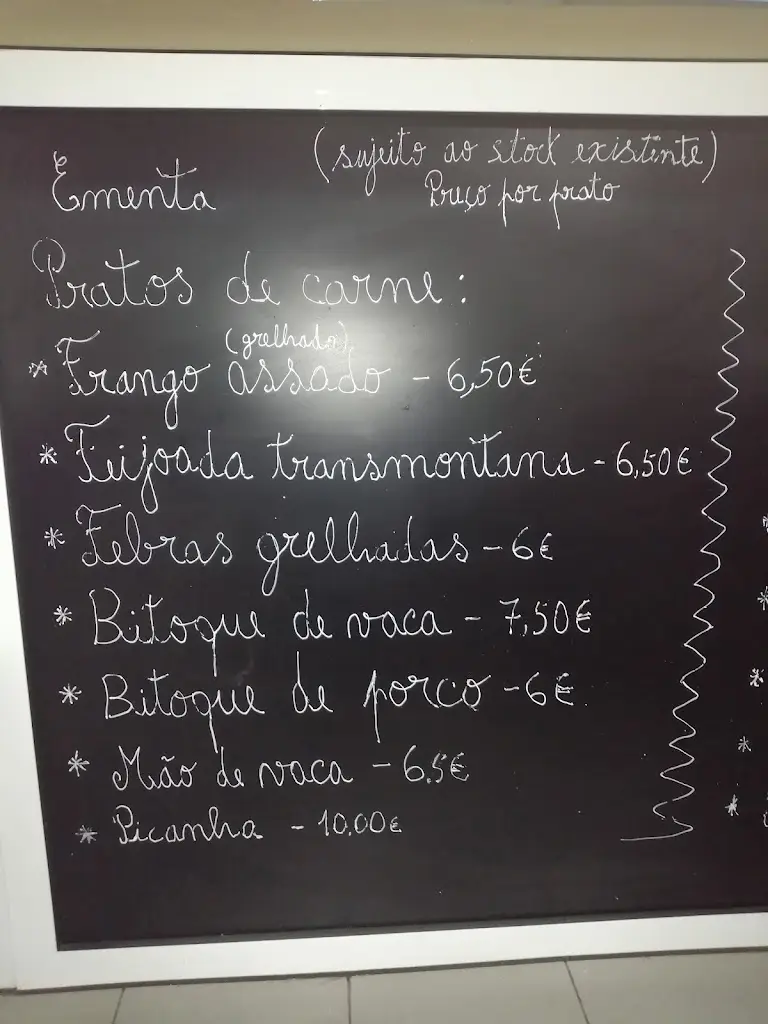 Ementa
(sujeito ao stock existente)
Preço por prato
Pratos de carne:
(grelhado)
* Frango assado - 6,50€
* Feijoada transmontana - 6,50€
* Febras grelhadas - 6€
* Bitoque de vaca - 7,50€
* Bitoque de porco - 6€
* Mão de vaca - 6.5€
* Picanha - 10.00€